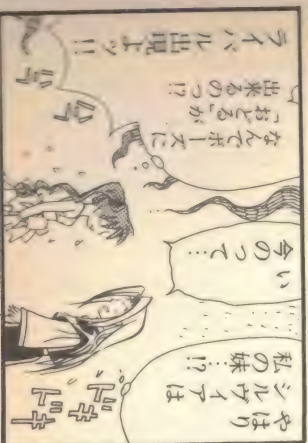 やはり
シルヴィアは
私の妹…!?
ドキ
ドキ
い
今のって…
なんでポーズに
「おどる」が
出来るのっ!?
ライバル出現よッ!!
ハラ
ハラ